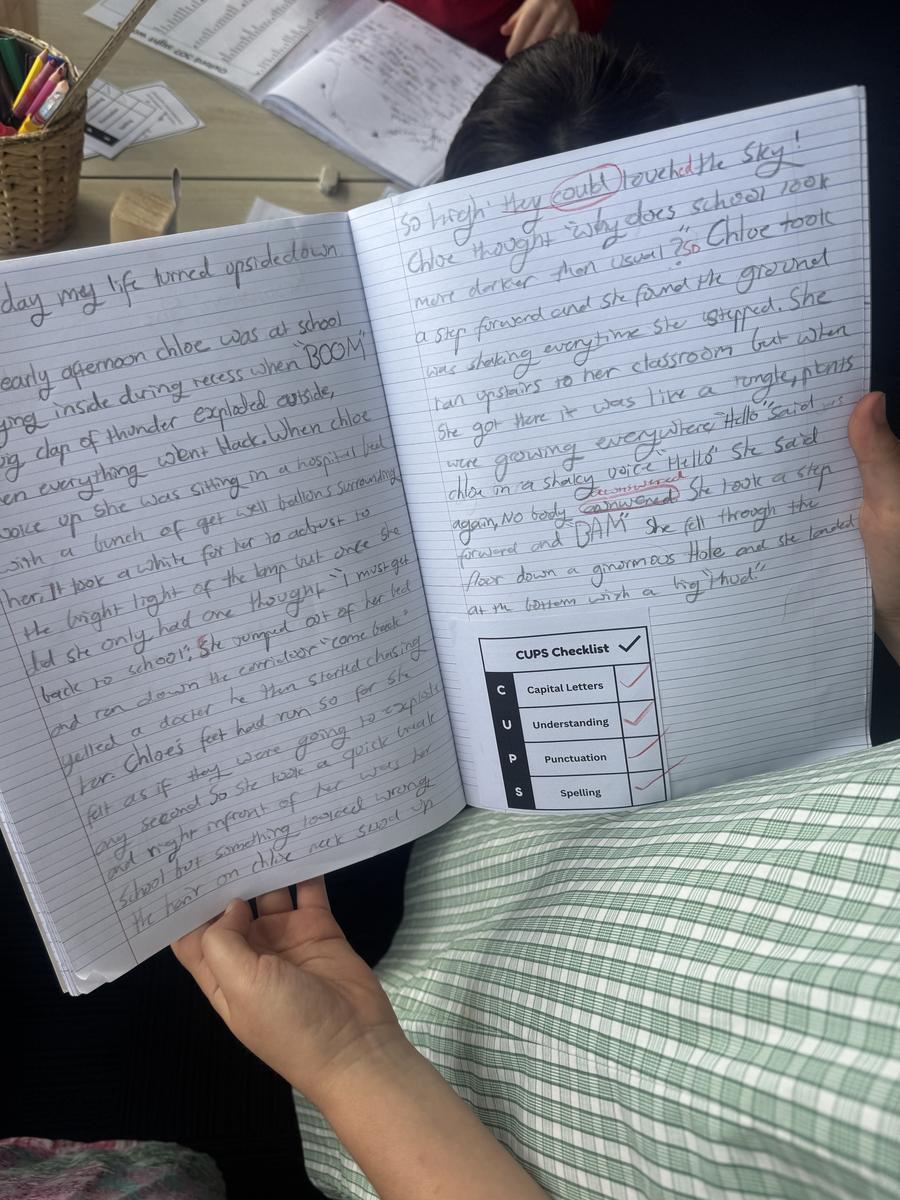 day my life turned upsidedown
early afternoon chloe was at school
ying inside during recess when "BOOM"
big clap of thunder exploded outside,
en everything went black. When chloe
woice up she was sitting in a hospital bed
with a bunch of get well ballons surrounding
her. It took a while for her to adjust to
the bright light of the lamp but once she
did she only had one thought "I must get
back to school". She jumped out of her bed
and ran down the corridoor "come back"
yelled a docter he then started chasing
her. Chloe's feet had run so far she
felt as if they were going to explode
any second So she took a quick break
and right infront of her was her
school but something looked wrong
the hair on chloe neck stood up
so high they could touched the Sky!
Chloe thought "why does school look
more darker then usual?" so Chloe took
a step forward and she found the ground
was shaking everytime she stepped. She
ran upstairs to her classroom but when
She got there it was like a jungle, plants
were growing everywhere "Hello" said
chloe in a shakey voice "Hello" she said
again, No body
She took a step
forward and "BAM" She fell through the
floor down a ginormous Hole and she landed
at the bottom with a big "thud."
CUPS Checklist ✓
C Capital Letters
U Understanding
P Punctuation
S Spelling